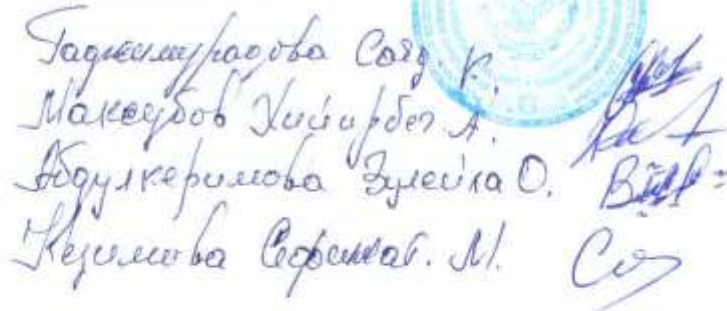 Гаджимурадова Саяд. К.
Максубов Хийирбег А.
Абдулкеримова Зулейха О.
Кезимова Сефижат. М.